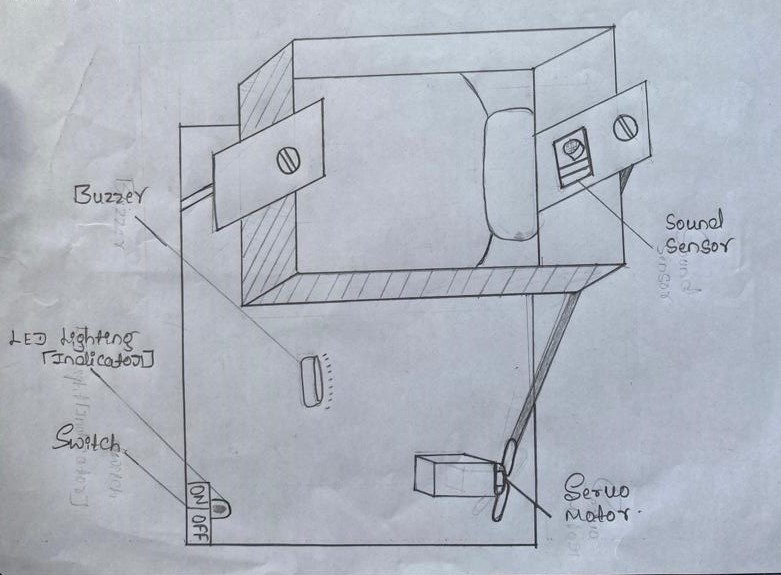 Buzzer
Sound
Sensor
LED Lighting
[Indicator]
Switch
ON
OFF
Servo
Motor